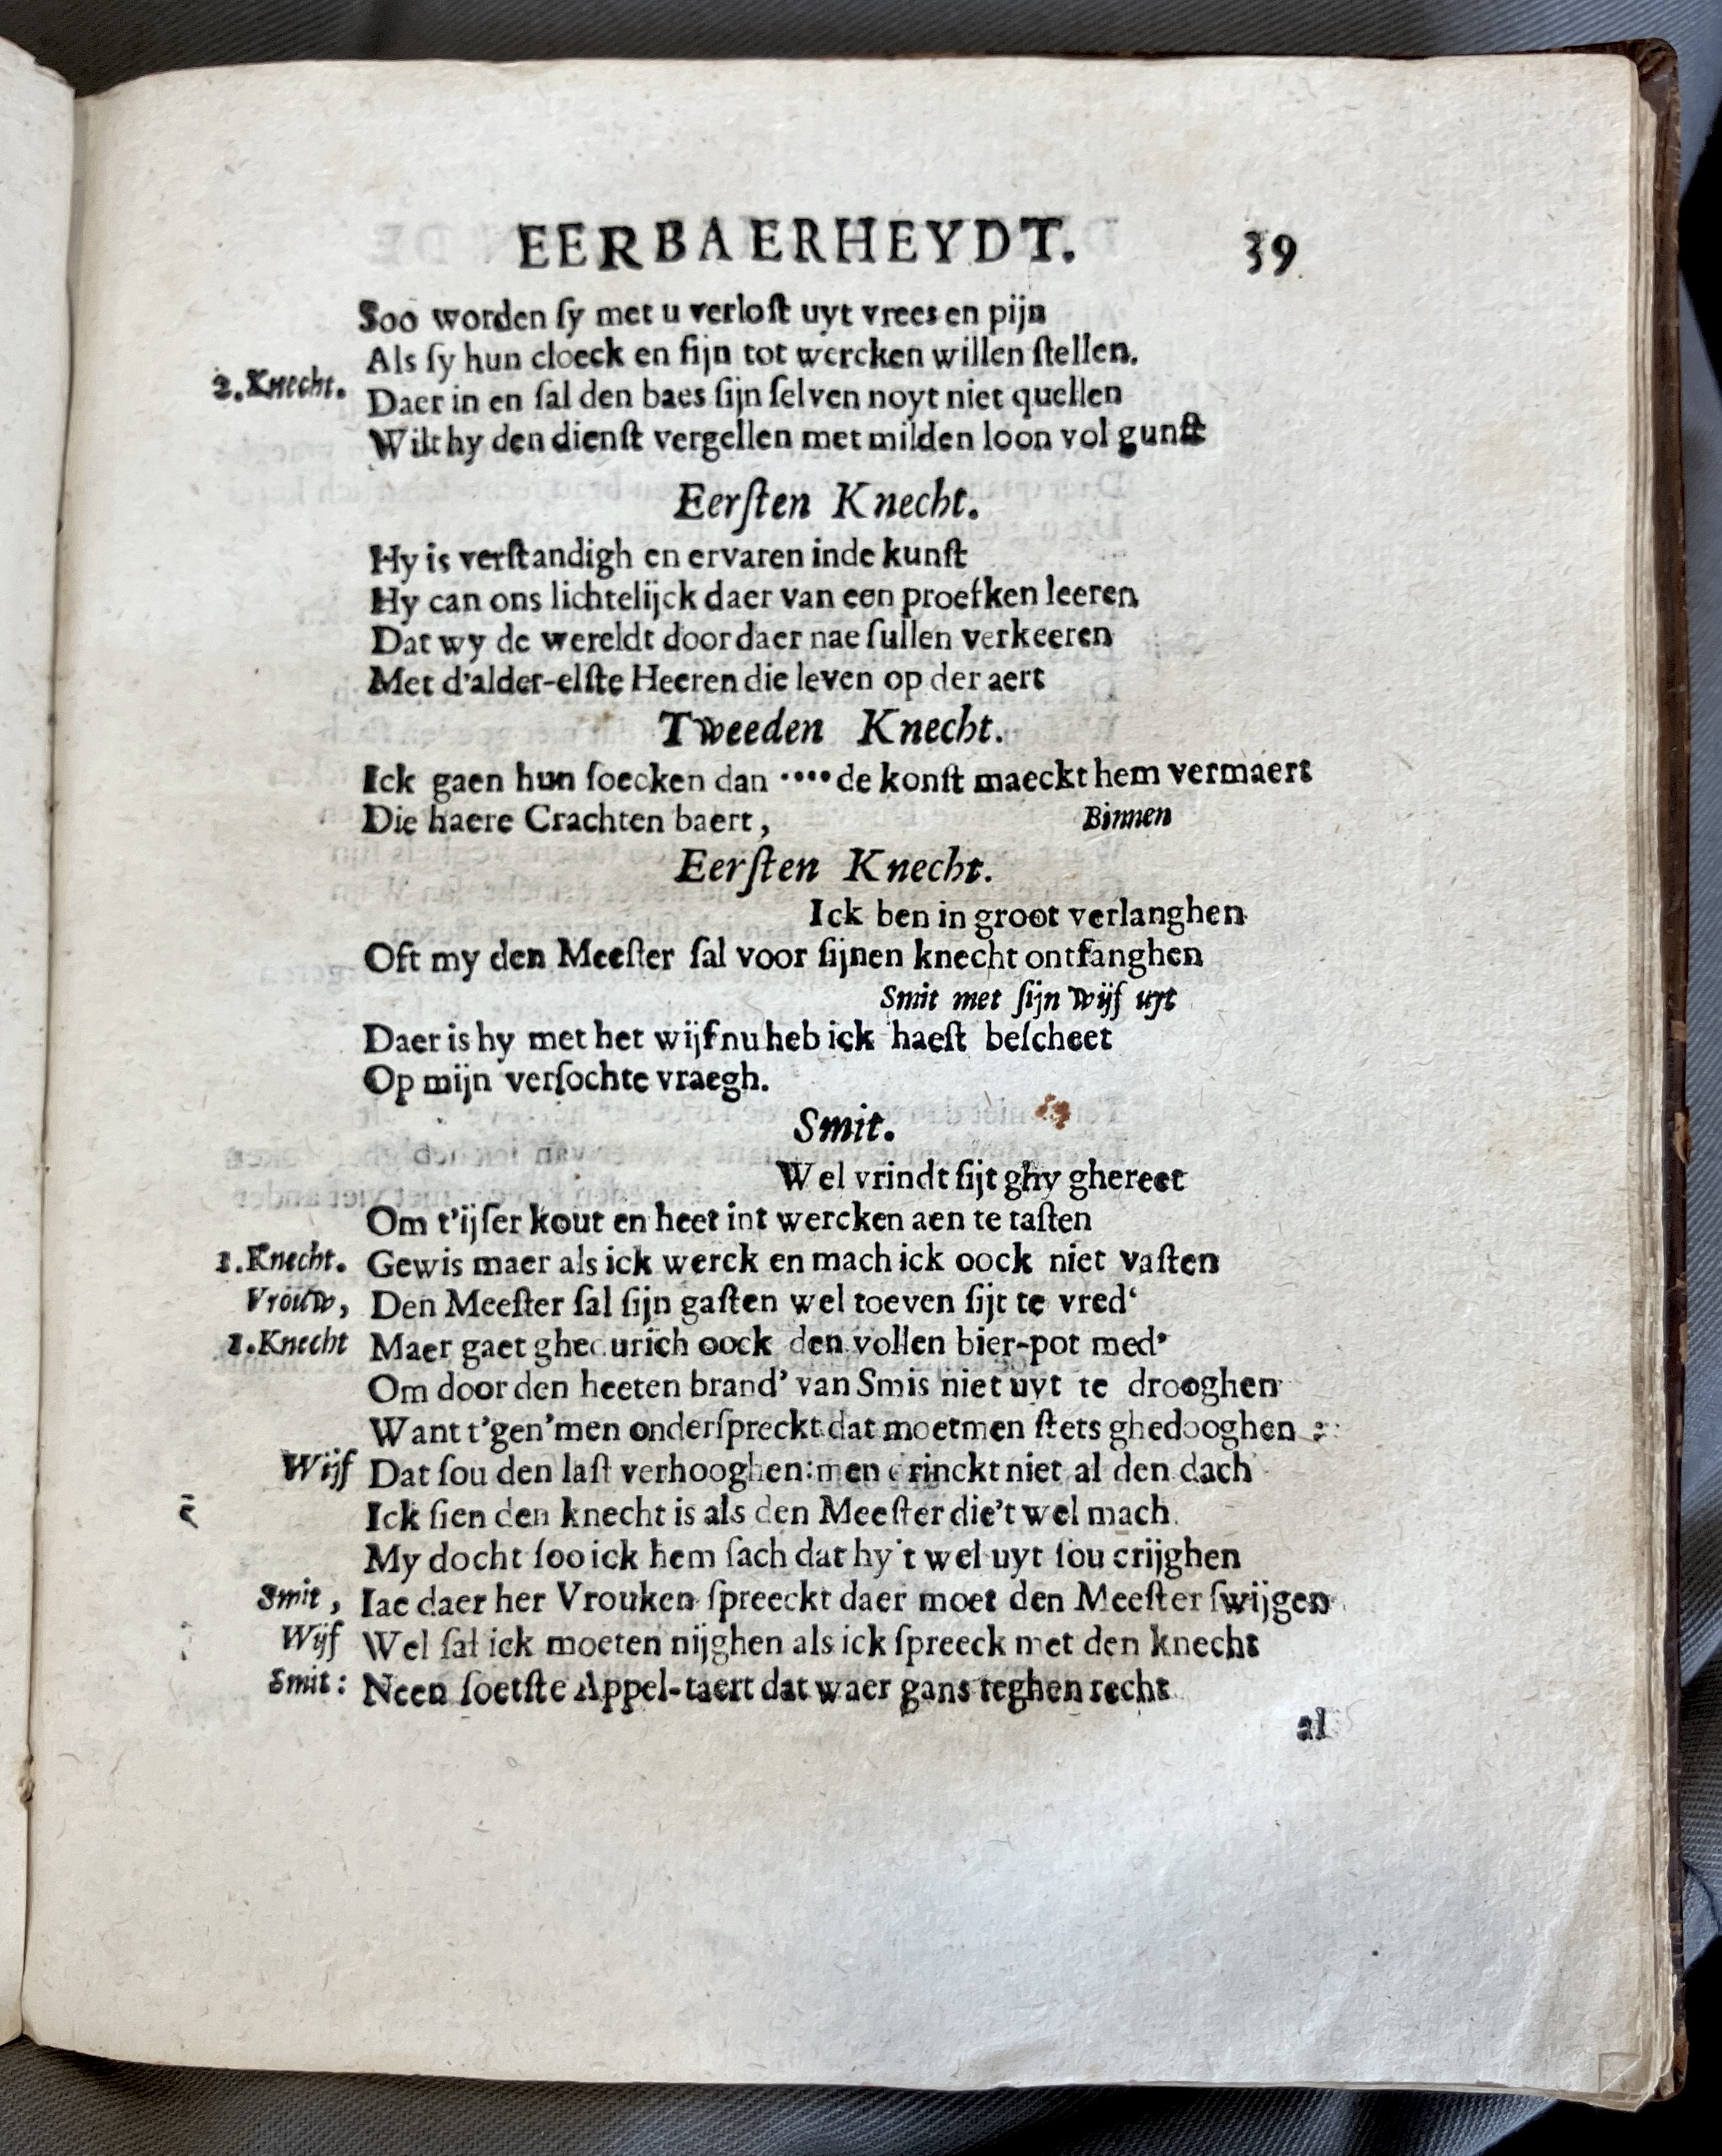 EERBAERHEYDT. 39
Soo worden ſy met u verloſt uyt vrees en pijn
Als ſy hun cloeck en fijn tot wercken willen ſtellen.
2.Knecht. Daer in en ſal den baes ſijn ſelven noyt niet quellen
Wilt hy den dienſt vergellen met milden loon vol gunſt
Eerſten Knecht.
Hy is verſtandigh en ervaren inde kunſt
Hy can ons lichtelijck daer van een proefken leeren
Dat wy de wereldt door daer nae ſullen verkeeren
Met d'alder-elſte Heeren die leven op der aert
Tweeden Knecht.
Ick gaen hun ſoecken dan ···· de konſt maeckt hem vermaert
Die haere Crachten baert, Binnen
Eerſten Knecht.
Ick ben in groot verlanghen
Oft my den Meeſter ſal voor ſijnen knecht ontfanghen
Smit met ſijn wijf uyt
Daer is hy met het wijf nu heb ick haeſt beſcheet
Op mijn verſochte vraegh.
Smit.
Wel vrindt ſijt ghy ghereet
Om t'ijſer kout en heet int wercken aen te taſten
1.Knecht. Gewis maer als ick werck en mach ick oock niet vaſten
Vrouw, Den Meeſter ſal ſijn gaſten wel toeven ſijt te vred‘
1.Knecht Maer gaet ghedurich oock den vollen bier-pot med'
Om door den heeten brand' van Smis niet uyt te drooghen
Want t'gen'men onderſpreckt dat moetmen ſtets ghedooghen :
Wijf Dat ſou den laſt verhooghen: men drinckt niet al den dach
Ick ſien den knecht is als den Meeſter die't wel mach.
My docht ſoo ick hem ſach dat hy't wel uyt ſou crijghen
Smit, Iae daer her Vrouken ſpreeckt daer moet den Meeſter ſwijgen
Wijf Wel ſal ick moeten nijghen als ick ſpreeck met den knecht
Smit: Neen ſoetſte Appel-taert dat waer gans teghen recht
al